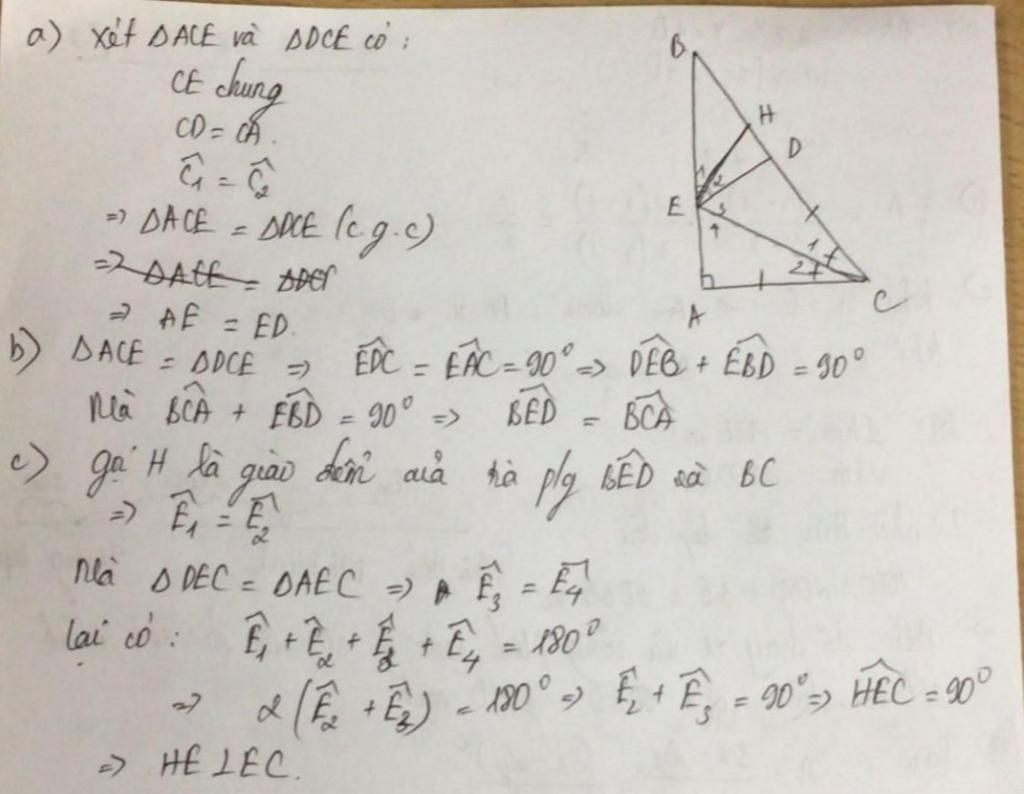 a) Xét ΔACE và ΔDCE có :
CE chung
CD = CA.
Ĉ₁ = Ĉ₂
=> ΔACE = ΔDCE (c.g.c)
=> AE = ED.
b) ΔACE = ΔDCE => EDC^ = EAC^ = 90° => DEB^ + EBD^ = 90°
Mà BCA^ + EBD^ = 90° => BED^ = BCA^
c) gọi H là giao điểm của tia p/g BED^ và BC
=> Ê₁ = Ê₂
Mà ΔDEC = ΔAEC => Ê₃ = Ê₄
lại có : Ê₁ + Ê₂ + Ê₃ + Ê₄ = 180°
=> 2(Ê₂ + Ê₃) = 180° => Ê₂ + Ê₃ = 90° => HEC^ = 90°
=> HE ⊥ EC.
B
H
D
1 2
E 3
4
1
2
A
C